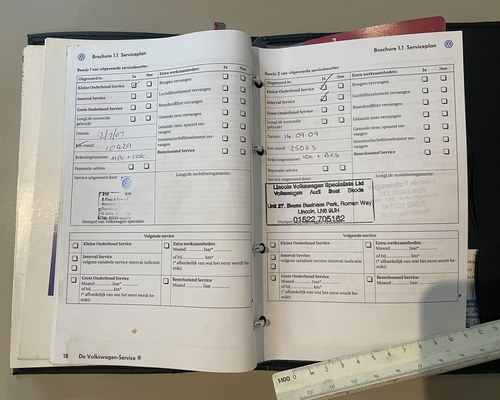 Brochure 1.1 Serviceplan
Bewijs 1 van uitgevoerde servicebeurten
Uitgevoerd is: Ja Nee
Kleine Onderhoud Service
Interval Service
Grote Onderhoud Service
LongLife motorolie gebruikt:
Datum:
Km-stand: 10429
Rekeningnummer:
Reparatie advies
Service uitgevoerd door:
Stempel van Volkswagen specialist
Extra werkzaamheden: Ja Nee
Bougies vervangen
Luchtfilterelement vervangen
Brandstoffilter vervangen
Getande riem vervangen
Getande riem spanrol vervangen
Interieurfilterelement vervangen
Remvloeistof Service
LongLife mobiliteitsgarantie:
Volgende service
Kleine Onderhoud Service
Interval Service
volgens variabele service-interval indicatie
Grote Onderhoud Service
Maand ........ Jaar*........
of bij ........ km*
(* afhankelijk van wat het eerst wordt bereikt)
Extra werkzaamheden:
Maand ........ Jaar*........
of bij ........ km*
(* afhankelijk van wat het eerst wordt bereikt)
Remvloeistof Service
Maand ........ Jaar ........
18 De Volkswagen-Service
Brochure 1.1 Serviceplan
Bewijs 2 van uitgevoerde servicebeurten
Uitgevoerd is: Ja Nee
Kleine Onderhoud Service
Interval Service
Grote Onderhoud Service
LongLife motorolie gebruikt:
Datum: 14.09.09
Km-stand:
Rekeningnummer:
Reparatie advies
Service uitgevoerd door:
Lincoln Volkswagen Specialists Ltd
Volkswagen Audi Seat Skoda
Unit 27, Evans Business Park, Roman Way
Lincoln, LN6 9UH
01522 705162
Extra werkzaamheden: Ja Nee
Bougies vervangen
Luchtfilterelement vervangen
Brandstoffilter vervangen
Getande riem vervangen
Getande riem spanrol vervangen
Interieurfilterelement vervangen
Remvloeistof Service
LongLife mobiliteitsgarantie:
Volgende service
Kleine Onderhoud Service
Interval Service
volgens variabele service-interval indicatie
Grote Onderhoud Service
Maand ........ Jaar*........
of bij ........ km*
(* afhankelijk van wat het eerst wordt bereikt)
Extra werkzaamheden:
Maand ........ Jaar*........
of bij ........ km*
(* afhankelijk van wat het eerst wordt bereikt)
Remvloeistof Service
Maand ........ Jaar ........